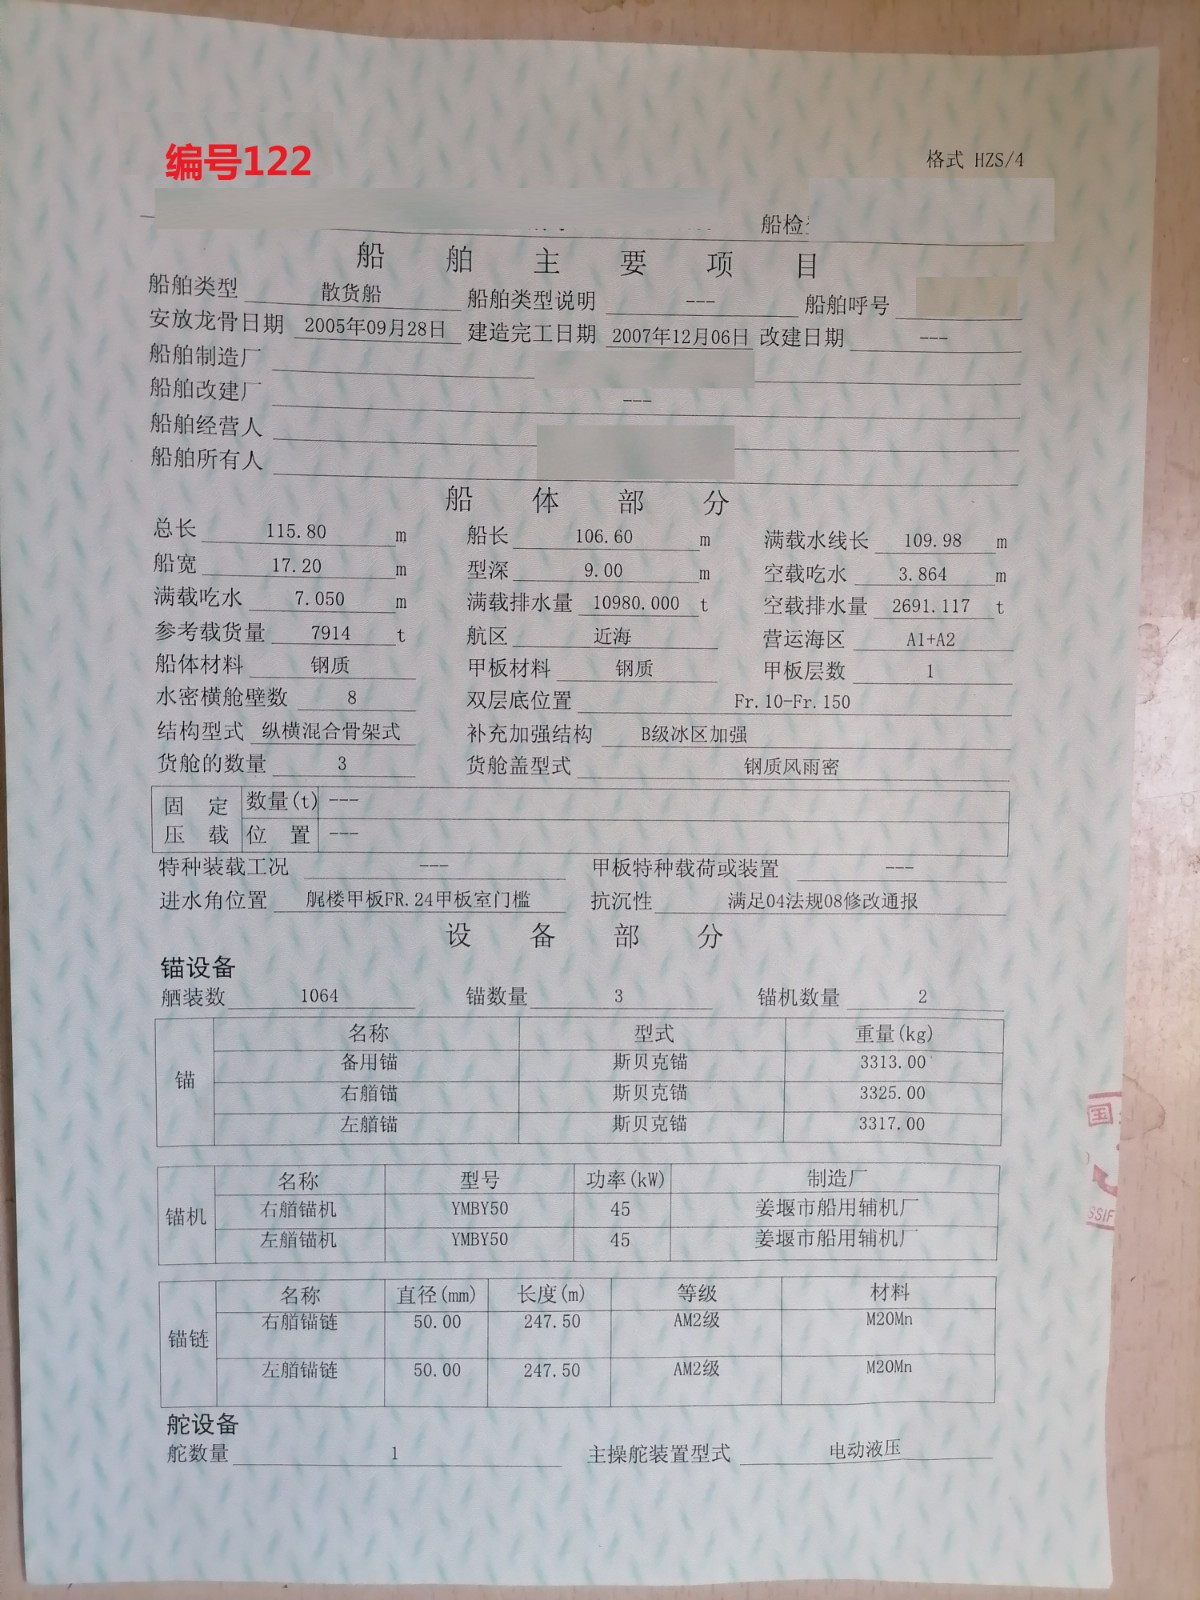 编号122
格式 HZS/4
船检
船舶主要项目
船舶类型 散货船 船舶类型说明 --- 船舶呼号
安放龙骨日期 2005年09月28日 建造完工日期 2007年12月06日 改建日期 ---
船舶制造厂
船舶改建厂 ---
船舶经营人
船舶所有人
船体部分
总长 115.80 m 船长 106.60 m 满载水线长 109.98 m
船宽 17.20 m 型深 9.00 m 空载吃水 3.864 m
满载吃水 7.050 m 满载排水量 10980.000 t 空载排水量 2691.117 t
参考载货量 7914 t 航区 近海 营运海区 A1+A2
船体材料 钢质 甲板材料 钢质 甲板层数 1
水密横舱壁数 8 双层底位置 Fr.10-Fr.150
结构型式 纵横混合骨架式 补充加强结构 B级冰区加强
货舱的数量 3 货舱盖型式 钢质风雨密
固定 数量(t) ---
压载 位置 ---
特种装载工况 --- 甲板特种载荷或装置 ---
进水角位置 艉楼甲板FR.24甲板室门槛 抗沉性 满足04法规08修改通报
设备部分
锚设备
舾装数 1064 锚数量 3 锚机数量 2
名称 型式 重量(kg)
锚
备用锚 斯贝克锚 3313.00
右艏锚 斯贝克锚 3325.00
左艏锚 斯贝克锚 3317.00
名称 型号 功率(kW) 制造厂
锚机
右艏锚机 YMBY50 45 姜堰市船用辅机厂
左艏锚机 YMBY50 45 姜堰市船用辅机厂
名称 直径(mm) 长度(m) 等级 材料
锚链
右艏锚链 50.00 247.50 AM2级 M20Mn
左艏锚链 50.00 247.50 AM2级 M20Mn
舵设备
舵数量 1 主操舵装置型式 电动液压
国
SSIF